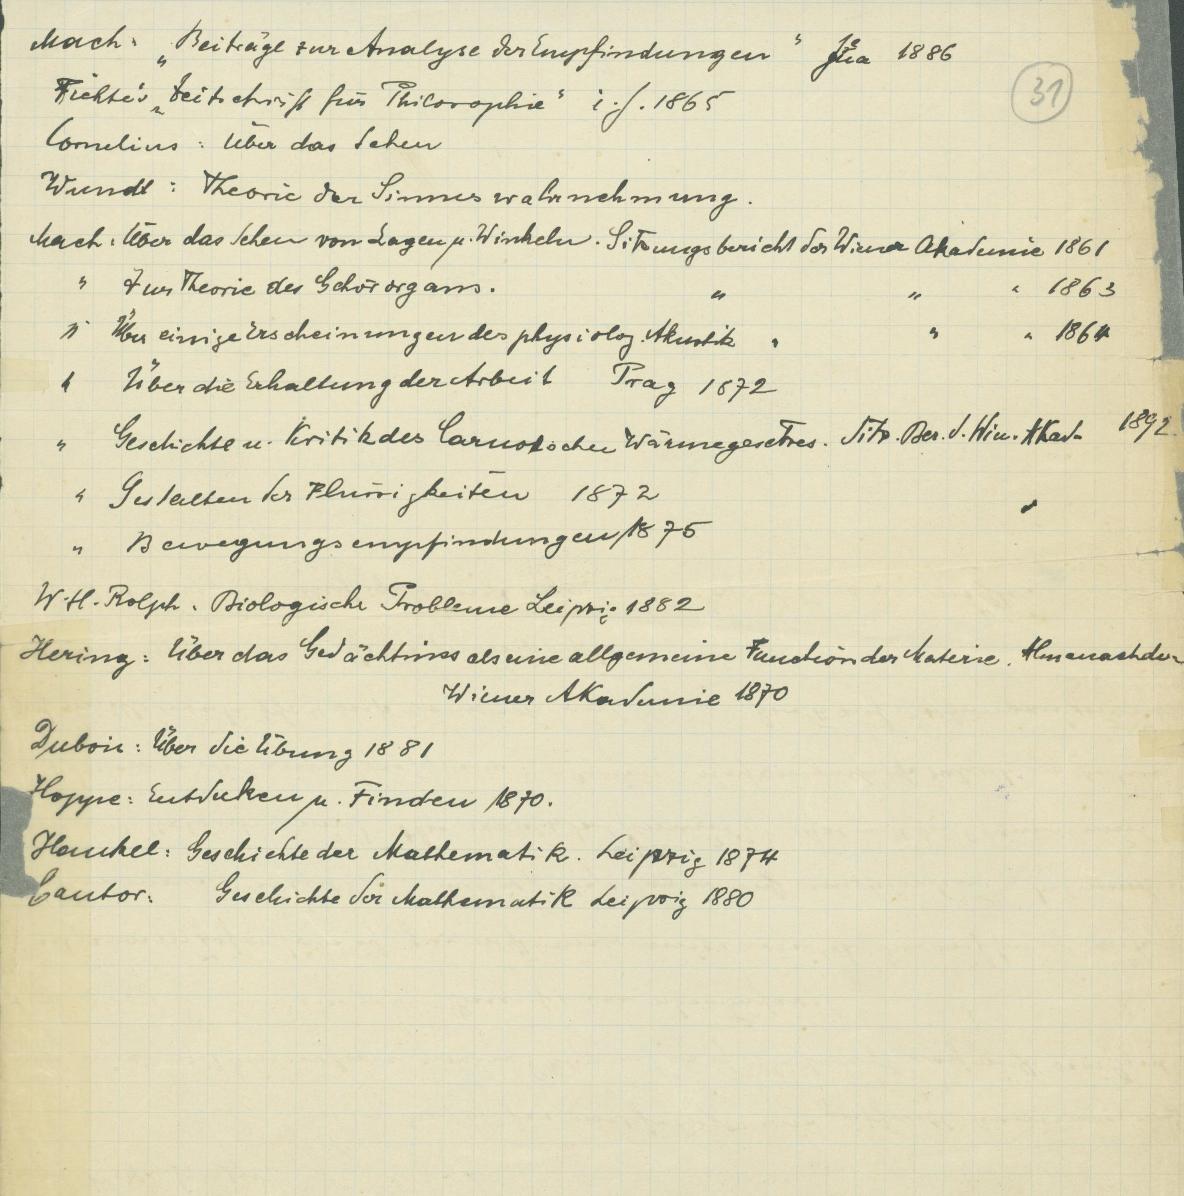 Mach: „Beiträge zur Analyse der Empfindungen" Jena 1886
31
Fichte's „Zeitschrift für Philosophie" i. J. 1865
Cornelius: Über das Sehen
Wundt: Theorie der Sinneswahrnehmung.
Mach: Über das Sehen von Lagen u. Winkeln. Sitzungsbericht der Wiener Akademie 1861
" Zur Theorie des Gehörorgans. " " " 1863
" Über einige Erscheinungen des physiolog. Akustik " " " 1864
" Über die Erhaltung der Arbeit Prag 1872
" Geschichte u. Kritik des Carnotschen Wärmegesetzes. Sitz. Ber. d. Wien. Akad. 1892
" Gestalten der Flüssigkeiten 1872
" Bewegungsempfindungen 1875
W. H. Rolph. Biologische Probleme Leipzig 1882
Hering: Über das Gedächtniss als eine allgemeine Function der Materie. Almanach der
Wiener Akademie 1870
Dubois: Über die Übung 1881
Hoppe: Entdecken u. Finden 1870.
Hankel: Geschichte der Mathematik. Leipzig 1874
Cantor: Geschichte der Mathematik Leipzig 1880